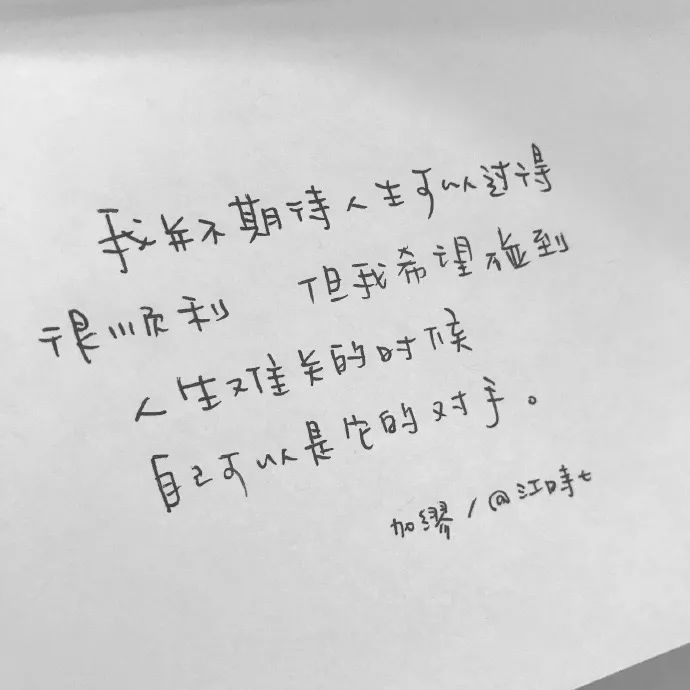 我并不期待人生可以过得
很顺利 但我希望碰到
人生难关的时候
自己可以是它的对手。
加缪/@江時七